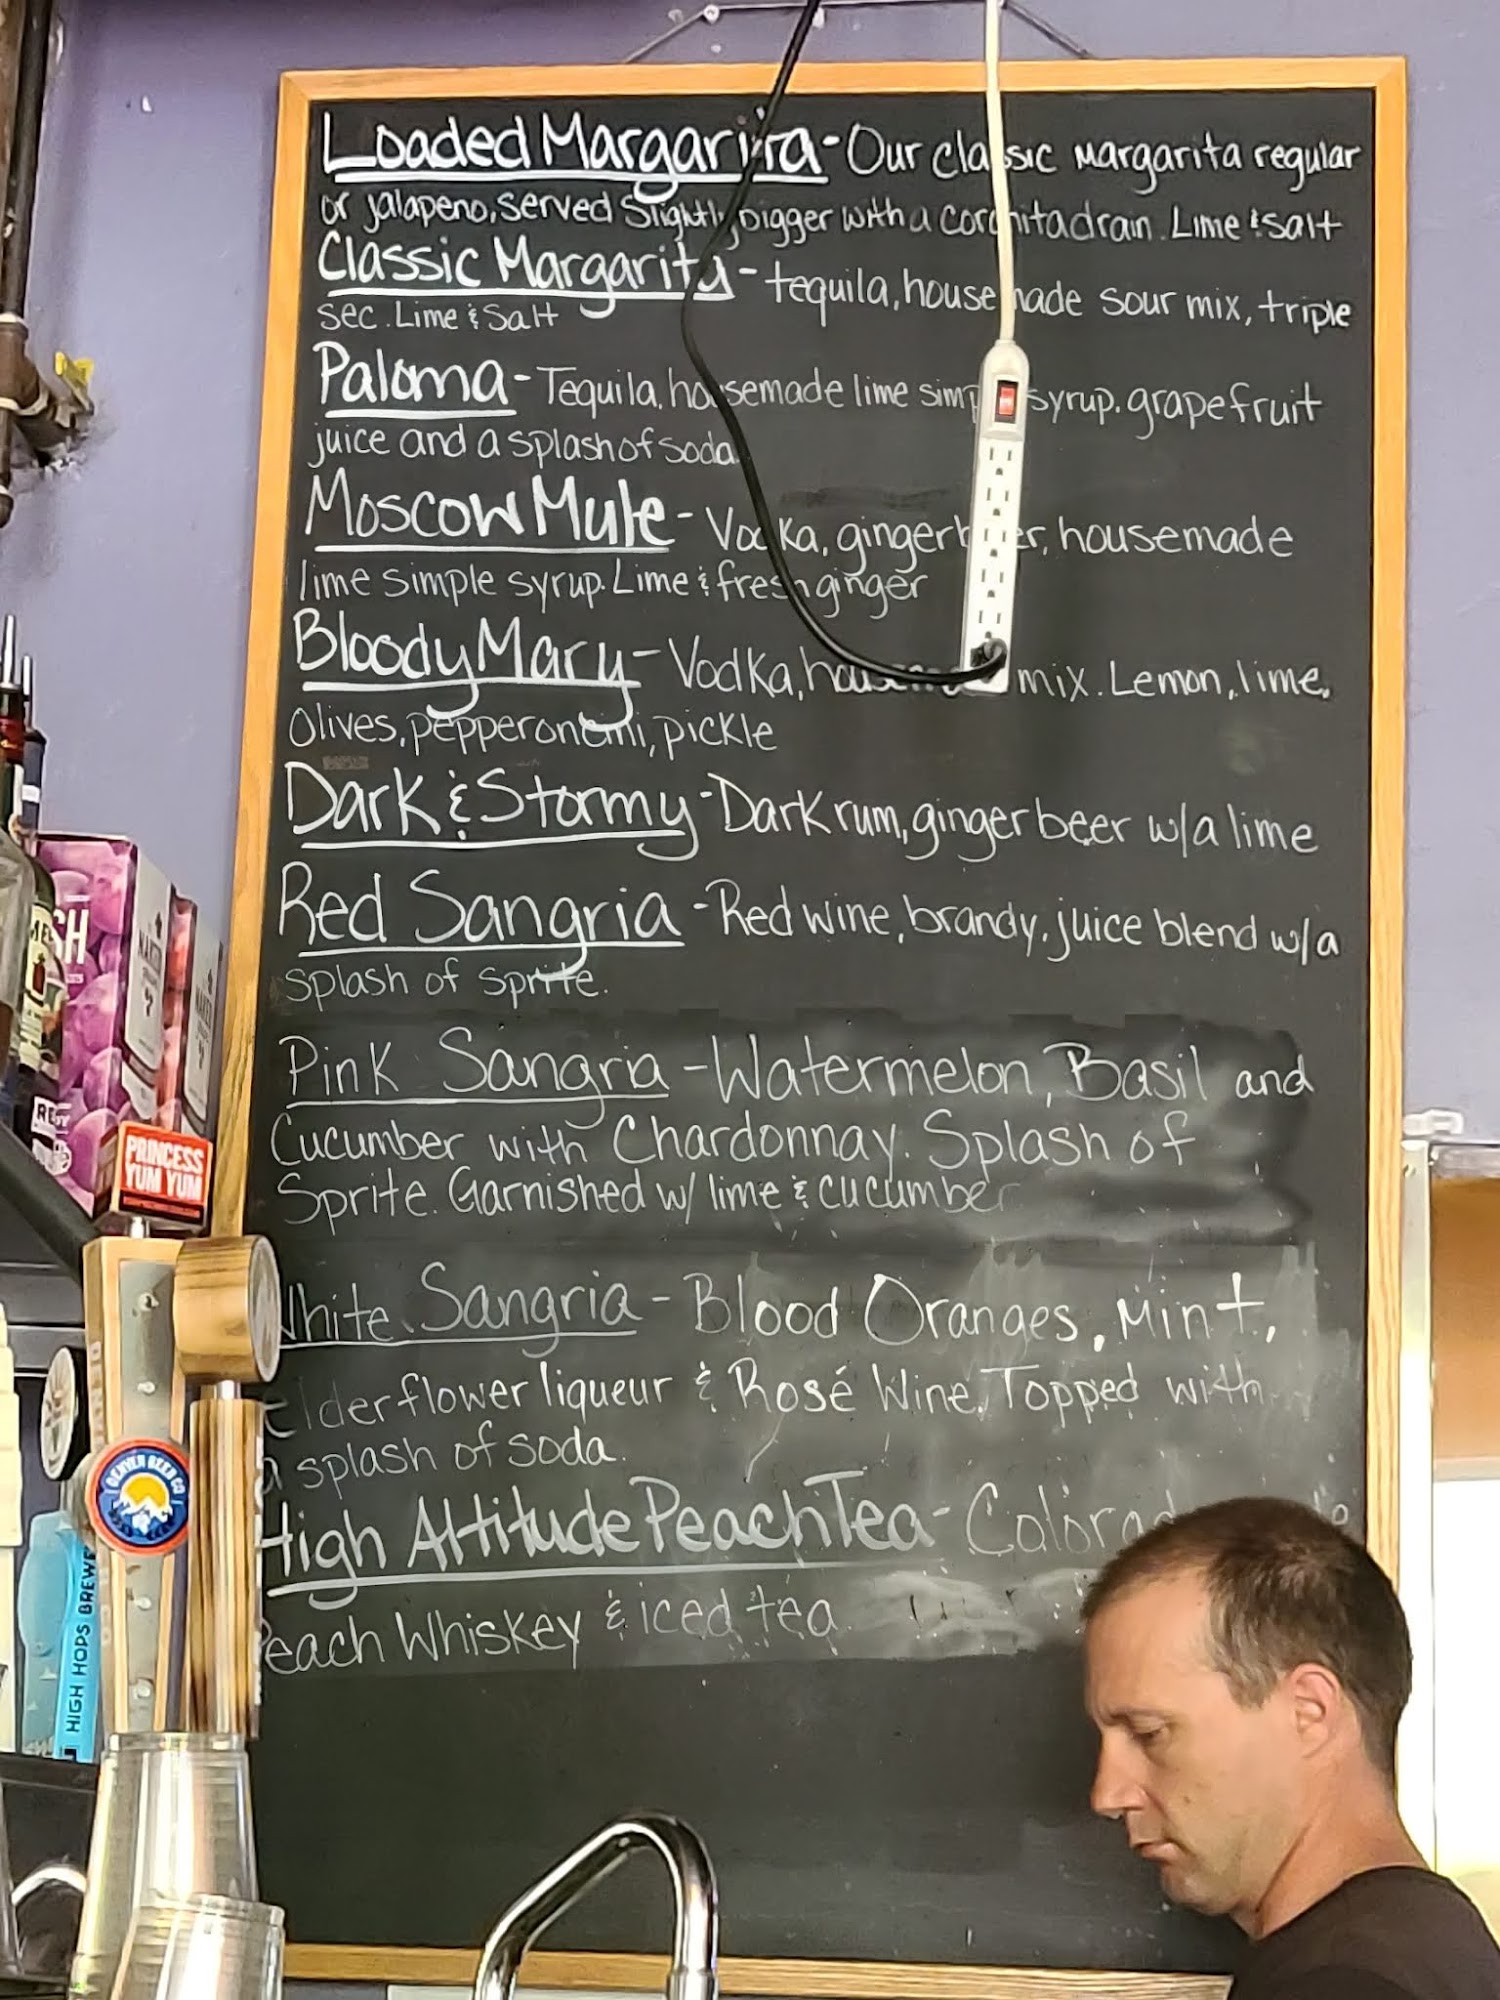 Loaded Margarita - Our classic Margarita regular
or jalapeno, served slightly bigger with a Coronita drain. Lime & salt
Classic Margarita - tequila, housemade sour mix, triple
sec. Lime & Salt
Paloma - Tequila, housemade lime simple syrup. grapefruit
juice and a splash of soda
Moscow Mule - Vodka, ginger beer, housemade
lime simple syrup. Lime & fresh ginger
Bloody Mary - Vodka, housemade mix. Lemon, lime,
Olives, pepperoncini, pickle
Dark & Stormy - Dark rum, ginger beer w/a lime
Red Sangria - Red wine, brandy, juice blend w/a
splash of sprite.
Pink Sangria - Watermelon, Basil and
Cucumber with Chardonnay. Splash of
Sprite. Garnished w/ lime & cucumber
White Sangria - Blood Oranges, Mint,
elderflower liqueur & Rosé Wine. Topped with
a splash of soda.
High Altitude Peach Tea - Colorad
Peach Whiskey & iced tea
PRINCESS
YUM YUM
DENVER BEER CO
HIGH HOPS BREWE
SH
NAKED